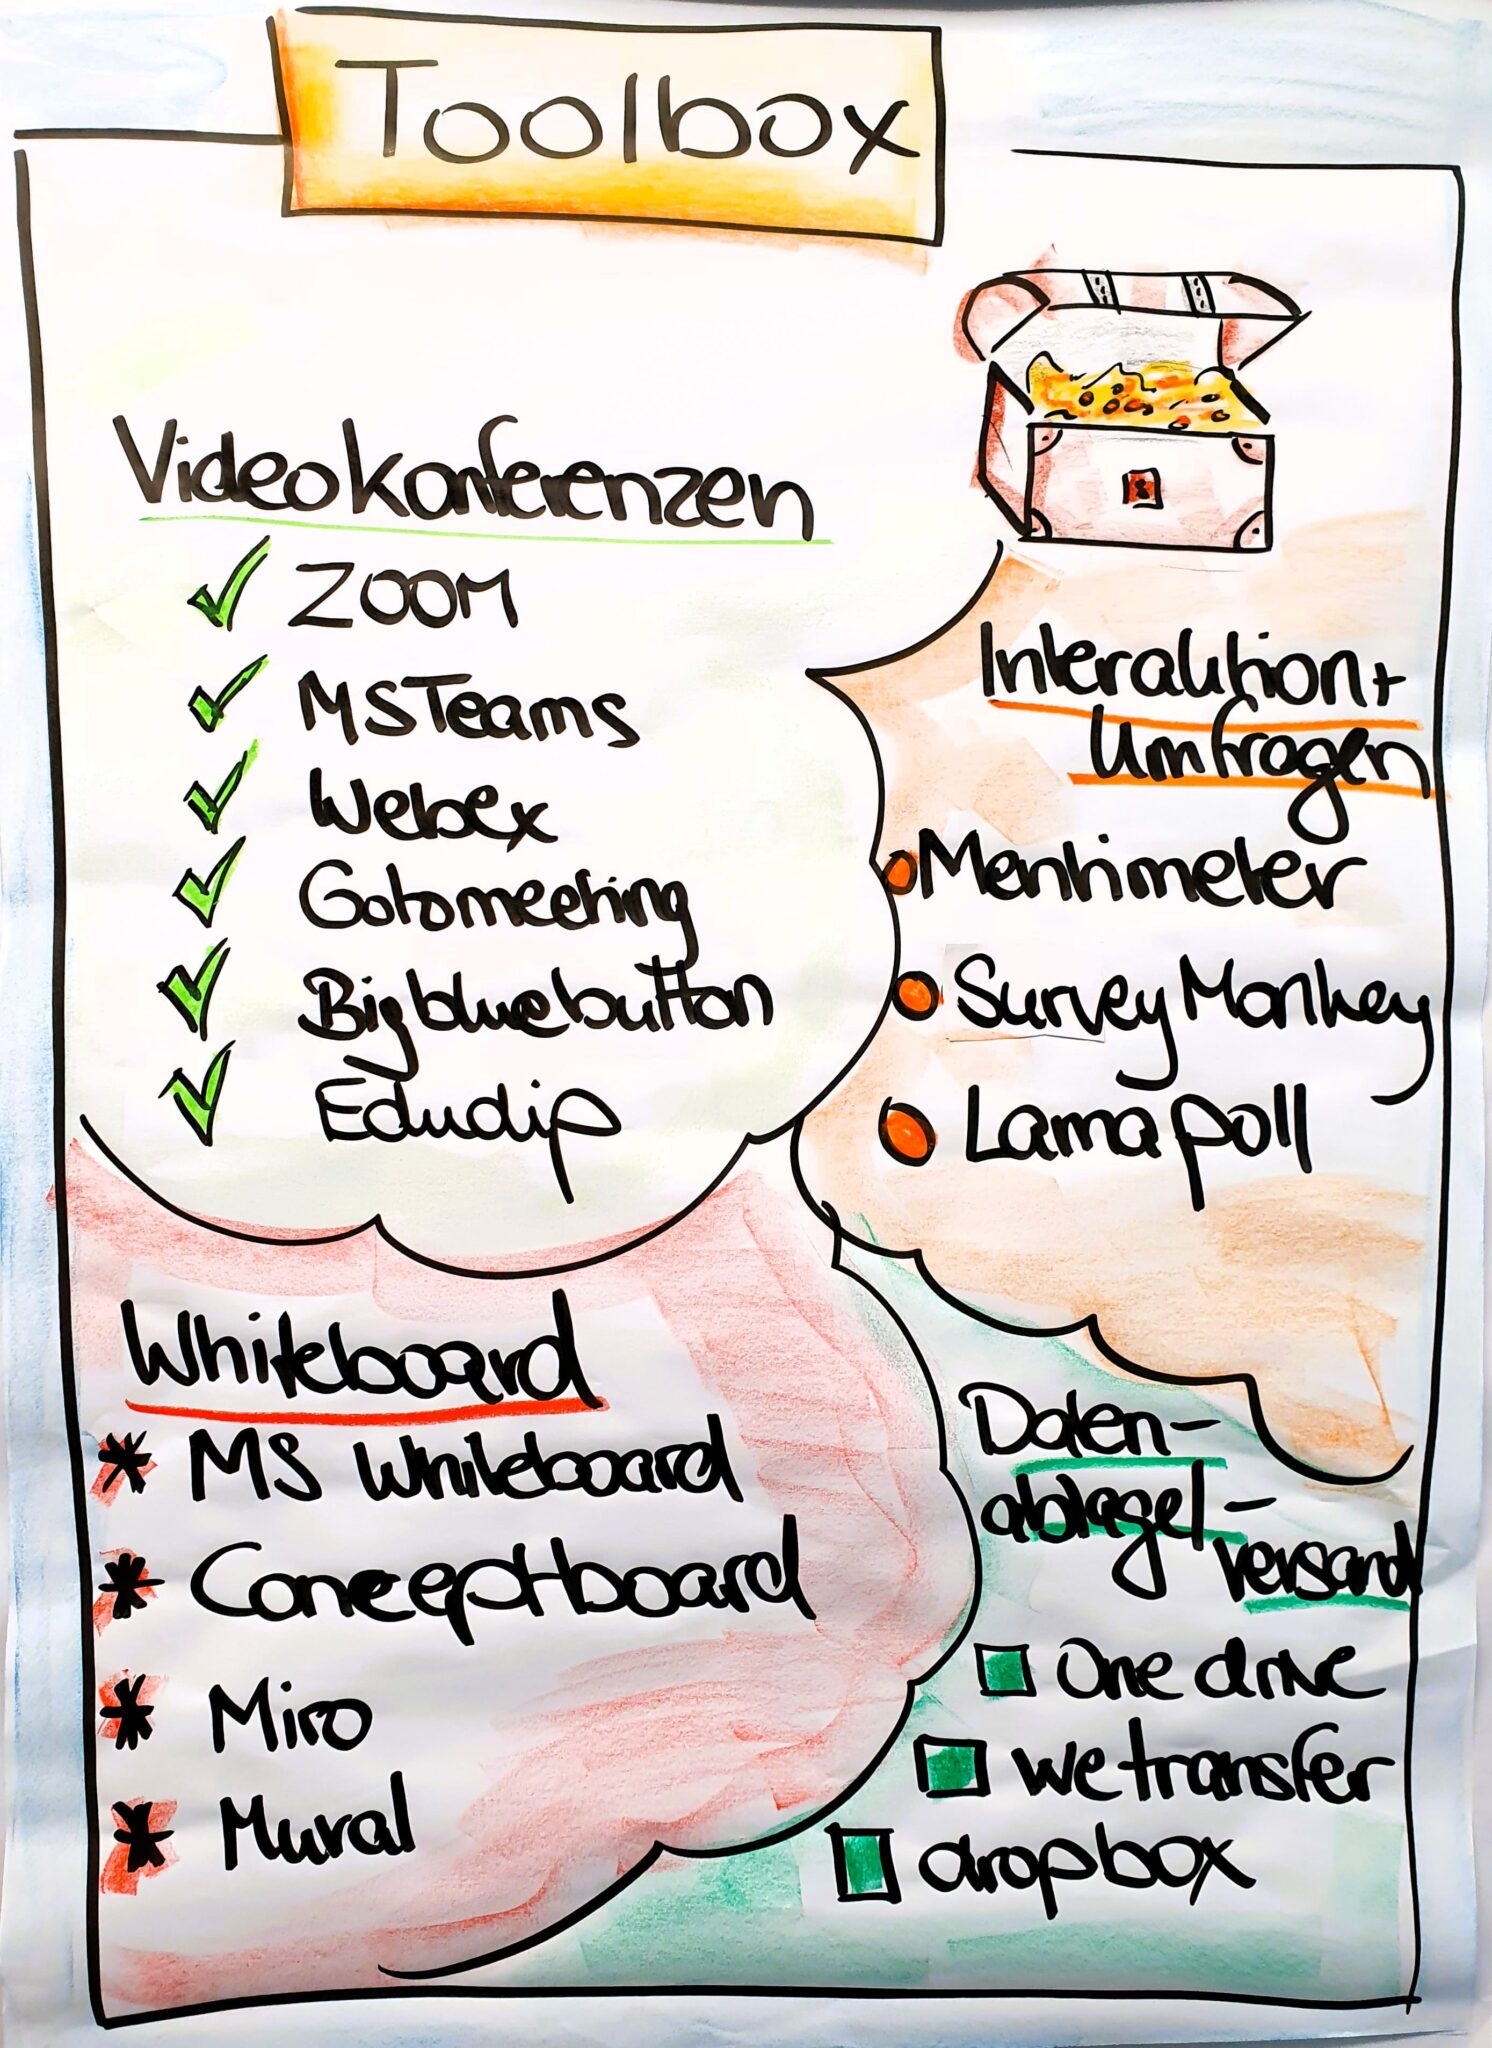 Toolbox
Videokonferenzen
ZOOM
MSTeams
Webex
Gotomeeting
Bigbluebutton
Edudip
Interaktion+
Umfragen
Mentimeter
Survey Monkey
Lamapoll
Whiteboard
MS Whiteboard
Conceptboard
Miro
Mural
Daten-
ablage/-
versand
One drive
we transfer
dropbox